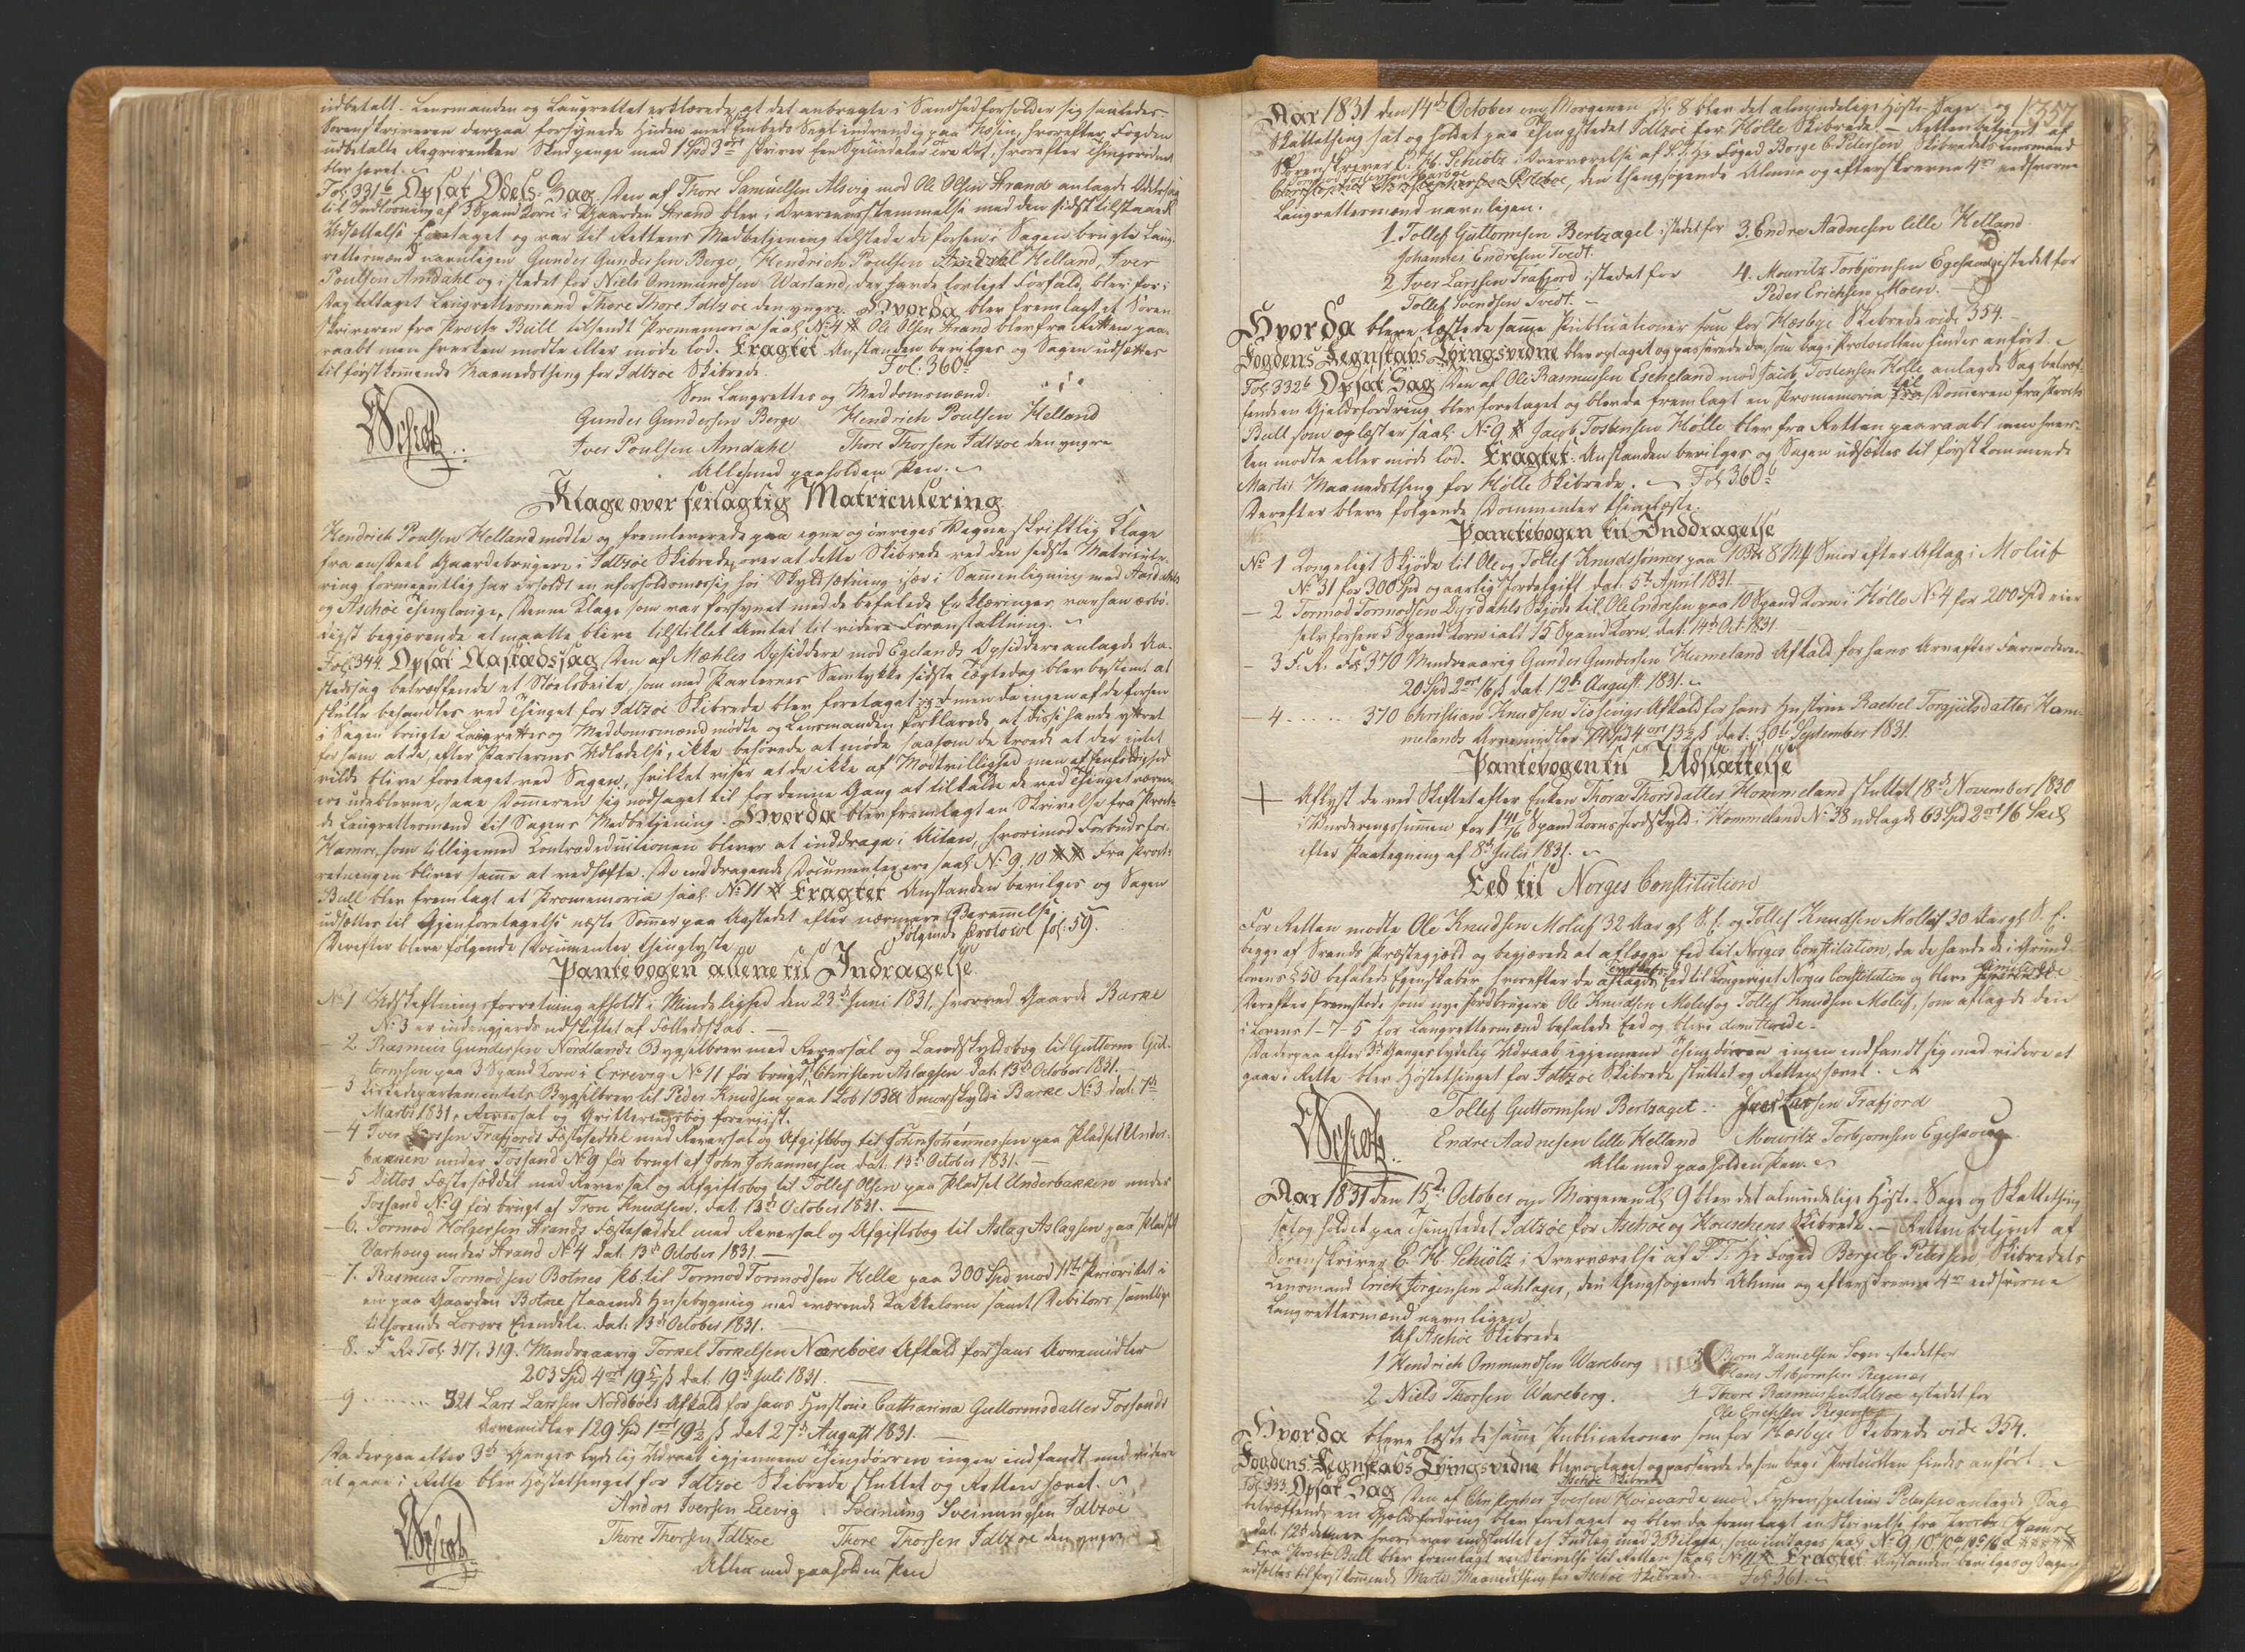 udbetalt. Lensmanden og Laugrettet erklærede, at det anbragte i Sandhed forholder sig saaledes.
Sorenskriveren derpaa forsynede Huden med Embeds Segl indvendig paa Hasen, hvorefter Fogden
udbetalte Reqvirenten Skudpenge med 1 Spd 3 ort skriver Een Speciedaler Tre Ort, hvorefter Thingsvidnet
blev hævet.
Fol. 331 b Opsat Odels-Sag. Den af Thore Samuelsen Alsvig mod Ole Olsen Strand anlagde Odelssag
til Indløsning af 3 Spand Korn i Gaarden Strand blev i Overeensstemmelse med den sidst tilstaaede
Udsættelse foretaget og var til Rettens Medbetjening tilstede de forhen i Sagen brugte Laug-
rettesmænd navnligen Gunder Gundersen Berge, Hendrich Poulsen Helland, Iver
Poulsen Amdahl og istedet for Niels Ommundsen Warland, der havde lovligt Forfald, blev for i
Dag tiltaget Laugrettesmand Thore Thorsen Idtzøe den yngre. Hvorda blev fremlagt et Soren
skriveren fra Procr Bull tilsendt Promemoria saal. No 4 Ole Olsen Strand blev fra Retten paa-
raabt men hverken mødte eller møde lod. Eragtet. Anstanden bevilges og Sagen udsættes
til først kommende Maanedsthing for Idtzøe Skibrede. Fol. 360
Som Laugrettes og Meddomsmænd.
Gunder Gundersen Berge Hendrich Poulsen Helland
Iver Poulsen Amdahl Thore Thorsen Idtzoe den yngre
Alle med paaholden Pen.
Klage over feilagtig Matriculering
Hendrich Poulsen Helland mødte og fremleverede paa egne og øvriges Vegne skriftlig Klage
fra endeel Gaardebrugere i Idtzøe Skibrede, over at dette Skibrede ved den sidste Matricule-
ring formeentlig har erholdt en uforholdsmæssig høi Skyldsætning især i Sammenligning med Aardahls
og Aschøe Thinglauge. Denne Klage som var forsynet med de befalede Erklæringer var han ærbø-
digst begjærende at maatte blive tilstillet Amtet til videre Foranstaltning.
Fol. 344 Opsat Aastedssag. Den af Mæhles Opsiddere mod Egelands Opsiddere anlagde Aa-
stedssag betræffende et Støelsbeite, som med Parternes Samtykke sidste Tægtedag blev bestemt at
skulle behandles ved Thinget for Idtzøe Skibrede blev foretaget men da ingen af de forhen
i Sagen brugte Laugrettes og Meddomsmænd mødte og Lensmanden forklarede at disse havde yttret
for ham at de, efter Parternes Udladelse, ikke behøvede at møde saasom de troede at der intet
vilde blive foretaget ved Sagen, hvilket viser at de ikke af Modvillighed men af Eenfoldighed
ere udeblevne, saae Dommeren sig nødsaget til for denne Gang at tilkalde de ved Thinget værende
de Laugrettesmænd til Sagens Medbetjening. Hvorda blev fremlagt en Skrivelse fra Procr
Hamre, som tilligemed Contradeductionen bliver at inddrage i Acten, hvorimod Forbudsfor-
retningen bliver samme at vedhæfte. De inddragende Documenter ere saal. No 9, 10 Fra Procr
Bull blev fremlagt et Promemoria saal. No 11 Eragtet Anstanden bevilges og Sagen
udsættes til Gjenforetagelse næste Sommer paa Aastedet efter nærmere Berammelse.
Derefter bleve følgende Documenter thinglyste følgende Protocol fol. 59.
Pantebogen allene til Indragelse
No 1 Udskiftningsforretning afholdt i Mindelighed den 23de Juni 1831, hvorved Gaarde Barke
No 3 er indengjærds udskiftet af Fælledsskab.
— 2 Rasmus Gundersen Nordlands Bygselbrev med Reversal og Landskyldsbog til Guttorm Gut-
tormsen paa 3 Spand Korn i Errevig No 11 før brugt af Christen Aslagsen dat. 13de October 1831.
— 3 Kirkedepartementets Bygselbrev til Peder Knudsen paa 1 Løb Smørskyld i Barke No 3 dat. 7de
Marts 1831, Reversal og Qvitteringsbog foreviist.
— 4 Iver Larssen Trafjords Fæsteseddel med Reversal og Afgiftsbog til John Johannessen paa Pladset Under-
bakken under Fossand No 9 før brugt af John Johannessen dat. 13de October 1831.
— 5 Dittos Fæsteseddel med Reversal og Afgiftsbog til Tollef Olsen paa Pladset Underbakken under
Fossand No 9 før brugt af Tron Knudsen. dat. 13de October 1831.
— 6. Tormod Holgersen Strands Fæsteseddel med Reversal og Afgiftsbog til Aslag Aslagsen paa Pladset
Varhoug under Strand No 4 dat. 13de October 1831.
— 7. Rasmus Tormodsen Botnes Pb. til Tormod Tormodsen Helle paa 300 Spd mod 1ste Prioritet i
en paa Gaarden Botne staaende Huusebygning med værende Kakkelovn samt Debitors samtlige
tilhørende Løsøre Eiendele. dat. 13de October 1831.
— 8. F. R. Fol. 317, 319. Mindreaarig Torkel Torkelsen Næreboes Afkald for hans Arvemidler
203 Spd 4 ort 19 ß dat. 19de Juli 1831.
— 9 ........ 321 Lars Larssen Nordboes Afkald for hans Hustrue Catharina Guttormsdatter Fossands
Arvemidler 129 Spd 1 ort 19½ ß dat 27de August 1831.
Da derpaa efter 3de Ganges lydelig Udraab igjennem Thingdørren ingen indfandt med videre
at gaae i Rette blev Høstethinget for Idtzøe Skibrede sluttet og Retten hævet.
Anders Iversen Leevig Sveinung Sveinungsen Idtzøe
Thore Thorsen Idtzoe Thore Thorsen Idtzoe den yngre
Alle med paaholden Pen
357
Aar 1831 den 14de October om Morgenen Kl. 8 blev det almindelige Høste-Sage- og
Skattething sat og holdet paa Thingstedet Idtzøe for Hølle Skibrede. — Retten betjent af
Sorenskriver E. H. Schiøtz i Overværelse af S. T. Hr Foged Børge C. Petersen, Skibredets Lensmand
den thingsøgende Almue og efterskrevne 4re eedsvorne
Laugrettesmænd navnligen.
1. Tollef Guttormsen Bertzagel istedet for 3. Endre Aadnesen lille Helland
Johannes Endresen Tvedt.
2 Iver Larssen Trafjord istedet for 4. Mouritz Torbjørnsen Egeskoug istedet for
Tollef Svendsen Tvedt. — Peder Erichsen Moen.
Hvorda bleve læste de samme Publicationer som for Hæsbye Skibrede vide 354.
Fogdens Regnskabs Thingsvidne blev optaget og passerede da, som bag i Protocollen findes anført.
Fol. 332 b Opsat Sag. Den af Ole Rasmussen Eskeland mod Jacob Tostensen Hølle anlagde Sag betræf-
fende en Gjeldsfordring blev foretaget og blev da fremlagt en Promemoria til Dommeren fra Procr
Bull som oplæst er saal. No 9 Jacob Tostensen Hølle blev fra Retten paaraabt men hver-
ken mødte eller møde lod. Eragtet. Anstanden bevilges og Sagen udsættes til først kommende
Martii Maanedsthing for Hølle Skibrede. Fol. 360 b
Derefter bleve følgende Documenter thinglæste.
Pantebogen til Inddragelse
No 1 Kongeligt Skjøde til Ole og Tollef Knudssønner paa 8 Mk Smør efter Aftag i Moluf
No 31 for 300 Spd og aarlig Jordafgift dat. 5te April 1831.
— 2 Tormod Tormodsen Dyrdahls Skjøde til Ole Endresen paa 10 Spand Korn i Hølle No 4 for 200 Spd eier
selv forhen 5 Spand Korn ialt 15 Spand Korn. dat. 14de Oct. 1831.
— 3 F. R. Fol. 370 Mindreaarig Gunder Gundersen Hameland Afkald for hans Arv efter Farmoderen
20 Spd 2 ort 16 ß dat. 12te August 1831.
— 4 ........ 370 Christian Knudsen Afkald for hans Hustrue Rachel Torgiulsdatter Ham-
melands Arvemidler 4 ort 13½ ß dat. 30te September 1831.
Pantebogen til Udslættelse
+ Aflyst de ved Skiftet efter Enken Thora Thorsdatter Hommeland sluttet 18de November 1830
i Vurderingssummen for Spand Korns Jordskyld i Hommeland No 38 udlagde 63 Spd 2 ort 16 Skl
efter Paategning af 8de Julii 1831.
Eed til Norges Constitution
For Retten mødte Ole Knudsen Moluf 32 Aar gl. S. E. og Tollef Knudsen Molluf 30 Aar gl. S. E.
begge af Strands Præstegjæld og begjærede at aflægge Eed til Norges Constitution, da de havde de i Grund-
lovens § 50 befalede Egenskaber, hvorefter de aflagde Eed til Kongeriget Norges Constitution og bleve dimitterede.
Derefter fremstode som nye Jordbrugere Ole Knudsen Moluf og Tollef Knudsen Moluf, som aflagde den
i Lovens 1-7-5 for Laugrettesmænd befalede Eed og bleve dimitterede.
Da derpaa efter 3de Ganges lydelig Udraab igjennem Thingdørren ingen indfandt sig med videre at
gaae i Rette blev Høstethinget for Idtzøe Skibrede sluttet og Retten hævet.
Tollef Guttormsen Bertzagel. Iver Larssen Trafjord
Endre Aadnesen lille Helland Mouritz Torbjornsen Egeskoug
Alle med paaholden Pen.
Aar 1831 den 15de October om Morgenen Kl. 9 blev det almindelige Høste-Sage og Skattething
sat og holdet paa Thingstedet Idtzøe for Aschøe og Houschens Skibrede. — Retten betjent af
Sorenskriver E. H. Schiøtz i Overværelse af S. T. Hr Foged Børge C. Petersen, Skibredets
Lensmand Erich Jørgensen Dahlager, den thingsøgende Almue og efterskrevne 4re eedsvorne
Laugrettesmænd navnligen,
Af Aschøe Skibrede
1 Hendrich Ommundsen Wareberg 3 Bjørn Danielsen Sogn istedetfor
Hans Asbjørnsen Regenæs
2 Niels Thorsen Wareberg. 4 Thore Rasmussen Idtzøe istedet for
Ole Erichsen
Hvorda bleve læste de samme Publicationer som for Hæsbye Skibrede vide 354.
Fogdens Regnskabs Thingsvidne blev optaget og passerede da som bag i Protocollen findes anført.
Aschøe Skibrede
Fol. 333 Opsat Sag. Den af Christopher Iversen mod Petersen anlagde Sag
betræffende en Gjeldsfordring blev foretaget og blev da fremlagt en Skrivelse fra Procr Hamre
dat. 12te dennes hvori var indsluttet et Indlæg med 3 Bilage, som indtages saal. No 9, 10
Fra Procr Bull blev fremlagt en Skrivelse til Retten saal. No 11 Eragtet Anstanden bevilges og Sagen
udsættes til først kommende Martii Maanedsthing for Aschøe Skibrede. Fol. 361.